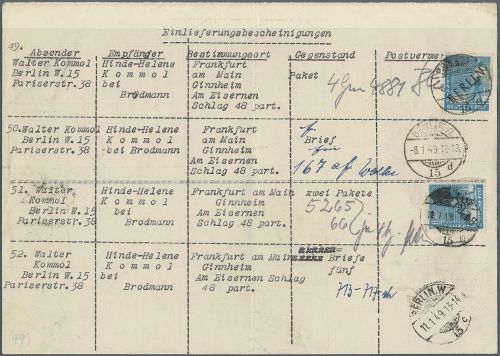 Einlieferungsbescheinigungen
49.
Absender Empfänger Bestimmungsort Gegenstand Postvermerk
Walter Kommol Hinde-Helene Frankfurt
Berlin W.15 K o m m o l am Main Paket
Pariserstr.38 bei Ginnheim
Brodmann Am Eisernen
Schlag 48 part.
50. Walter Kommol Hinde-Helene Frankfurt
Berlin W.15 K o m m o l am Main Brief
Pariserstr.38 bei Brodmann Ginnheim
Am Eisernen 167
Schlag 48 part.
BERLIN W
-8.1.49.18-19
15 d
51. Walter Hinde-Helene Frankfurt am Main zwei Pakete
Kommol K o m m o l Ginnheim 5265
Berlin W.15 bei Am Eisernen 66
Pariserstr.38 Brodmann Schlag 48 part.
15 d
52. Walter Hinde-Helene Frankfurt am Main Briefe
Kommol K o m m o l Ginnheim fünf
Berlin W.15 bei Am Eisernen Schlag
Pariserstr.38 Brodmann 48 part. 713-717
BERLIN W
11.1.49.13-14
15 c
(49)